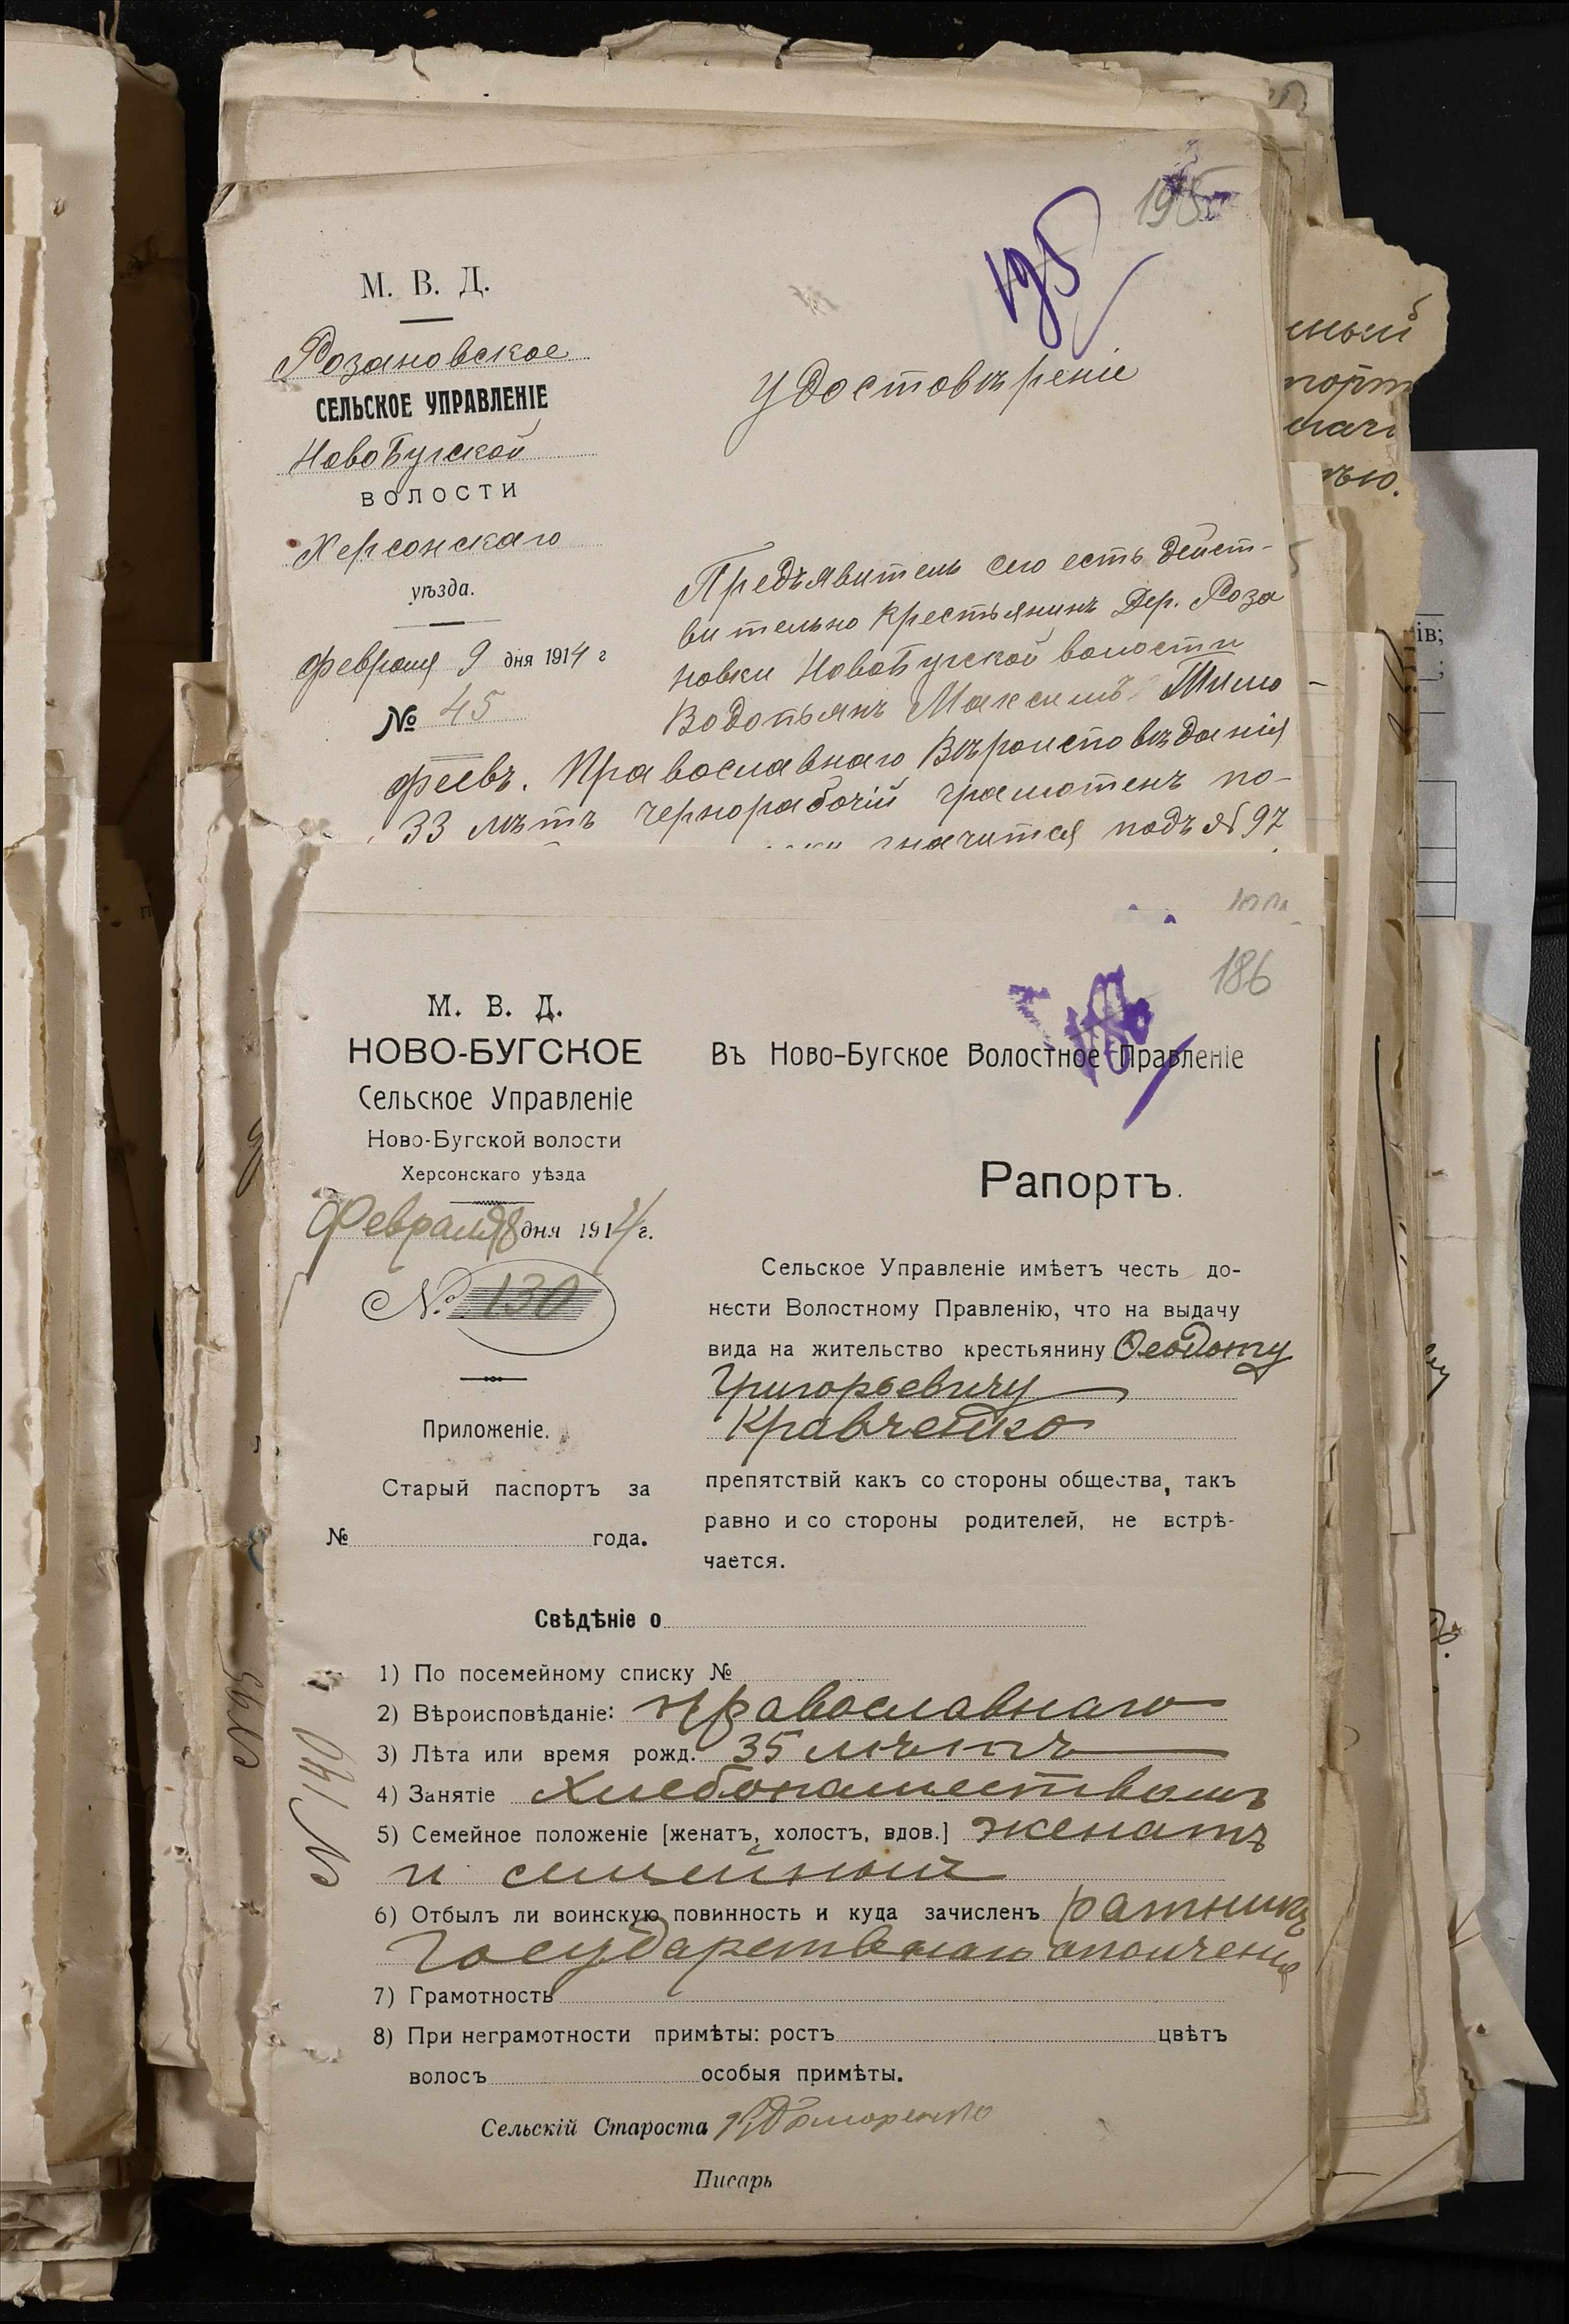 195
195
М. В. Д.
Розановское
СЕЛЬСКОЕ УПРАВЛЕНІЕ
НовоБугской
ВОЛОСТИ
Херсонскаго
уѣзда.
Февраля 9 дня 1914 г
№ 45
Удостовѣреніе
Предъявитель сего есть дейст-
вительно крестьянинъ Дер. Роза
новки НовоБугской волости
Водопьянъ Максимъ Тимо
феевъ. Православнаго Вѣроисповѣданія
33 лѣтъ чернорабочій грамотенъ по-
значится подъ № 97
186
М. В. Д.
НОВО-БУГСКОЕ
Сельское Управленіе
Ново-Бугской волости
Херсонскаго уѣзда
Февраля 8 дня 1914 г.
№ 130
Приложеніе.
Старый паспортъ за
№ года.
Въ Ново-Бугское Волостное Правленіе
Рапортъ.
Сельское Управленіе имѣетъ честь до-
нести Волостному Правленію, что на выдачу
вида на жительство крестьянину Ѳеодоту
Григорьевичу
Кравченко
препятствій какъ со стороны общества, такъ
равно и со стороны родителей, не встрѣ-
чается.
Свѣдѣніе о
1) По посемейному списку №
2) Вѣроисповѣданіе: православнаго
3) Лѣта или время рожд. 35 лѣтъ
4) Занятіе Хлебопашествомъ
5) Семейное положеніе [женатъ, холостъ, вдов.] женатъ
и семейный
6) Отбылъ ли воинскую повинность и куда зачисленъ ратникъ
Государственаго ополченія
7) Грамотность
8) При неграмотности примѣты: ростъ цвѣтъ
волосъ особыя примѣты.
Сельскій Староста
Писарь
№ 140
№ 95